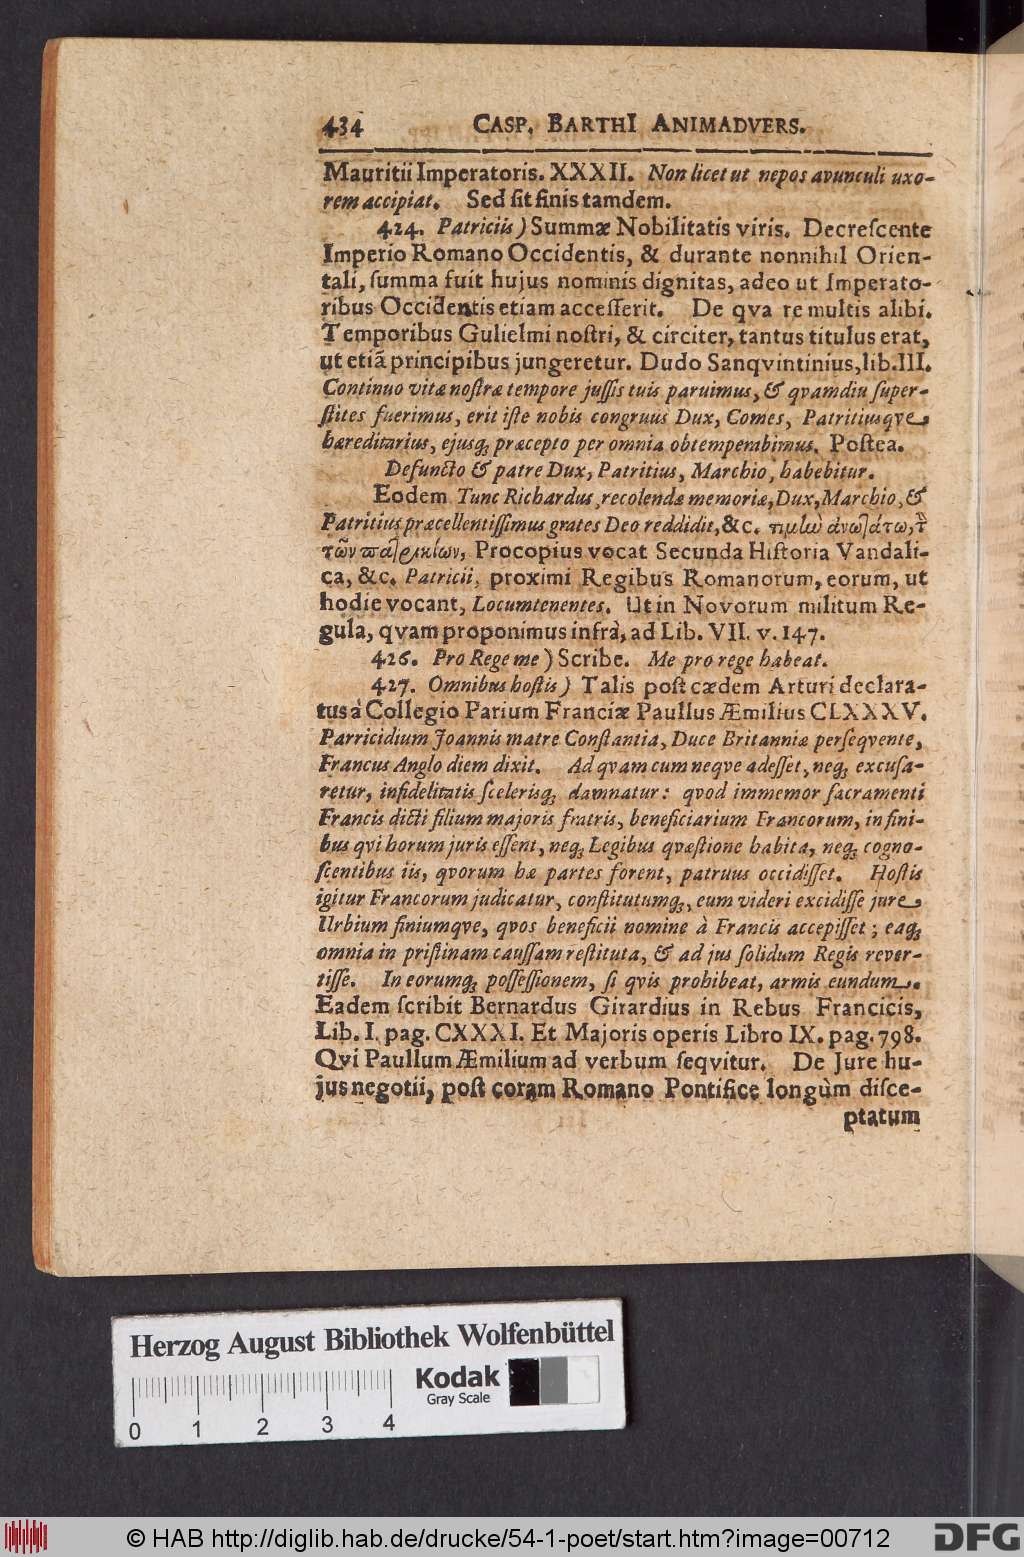 434 CASP. BARTHI ANIMADVERS.
Mauritii Imperatoris. XXXII. Non licet ut nepos avunculi uxo-
rem accipiat. Sed sit finis tamdem.
424. Patriciis) Summæ Nobilitatis viris. Decrescente
Imperio Romano Occidentis, & durante nonnihil Orien-
tali, summa fuit hujus nominis dignitas, adeo ut Imperato-
ribus Occidentis etiam accesserit. De qva re multis alibi.
Temporibus Gulielmi nostri, & circiter, tantus titulus erat,
ut etiã principibus jungeretur. Dudo Sanqvintinius, lib. III.
Continuo vitæ nostræ tempore jussis tuis paruimus, & qvamdiu super-
stites fuerimus, erit iste nobis congruus Dux, Comes, Patritiusqve
hæreditarius, ejusq; præcepto per omnia obtemperabimus. Postea.
Defuncto & patre Dux, Patritius, Marchio, habebitur.
Eodem Tunc Richardus, recolendæ memoriæ, Dux, Marchio, &
Patritius præcellentissimus grates Deo reddidit, &c. τιμὼ ἀνωτάτω, τ̃
τῶν πατρικίων, Procopius vocat Secunda Historia Vandali-
ca, &c. Patricii, proximi Regibus Romanorum, eorum, ut
hodie vocant, Locumtenentes. Ut in Novorum militum Re-
gula, qvam proponimus infrà, ad Lib. VII. v. 147.
426. Pro Rege me) Scribe. Me pro rege habeat.
427. Omnibus hostis) Talis post cædem Arturi declara-
tus à Collegio Parium Franciæ Paullus Æmilius CLXXXV.
Parricidium Joannis matre Constantia, Duce Britanniæ perseqvente,
Francus Anglo diem dixit. Ad qvam cum neqve adesset, neq; excusa-
retur, infidelitatis scelerisq; damnatur: qvod immemor sacramenti
Francis dicti filium majoris fratris, beneficiarium Francorum, in fini-
bus qvi horum juris essent, neq; Legibus qvæstione habita, neq; cogno-
scentibus iis, qvorum hæ partes forent, patruus occidisset. Hostis
igitur Francorum judicatur, constitutumq;, eum videri excidisse jure
Urbium finiumqve, qvos beneficii nomine à Francis accepisset; eaq;
omnia in pristinam caussam restituta, & ad jus solidum Regis rever-
tisse. In eorumq; possessionem, si qvis prohibeat, armis eundum.
Eadem scribit Bernardus Girardius in Rebus Francicis,
Lib. I. pag. CXXXI. Et Majoris operis Libro IX. pag. 798.
Qvi Paullum Æmilium ad verbum seqvitur. De Jure hu-
jus negotii, post coram Romano Pontifice longùm disce-
ptatum
Herzog August Bibliothek Wolfenbüttel
Kodak
Gray Scale
0 1 2 3 4
© HAB http://diglib.hab.de/drucke/54-1-poet/start.htm?image=00712
DFG